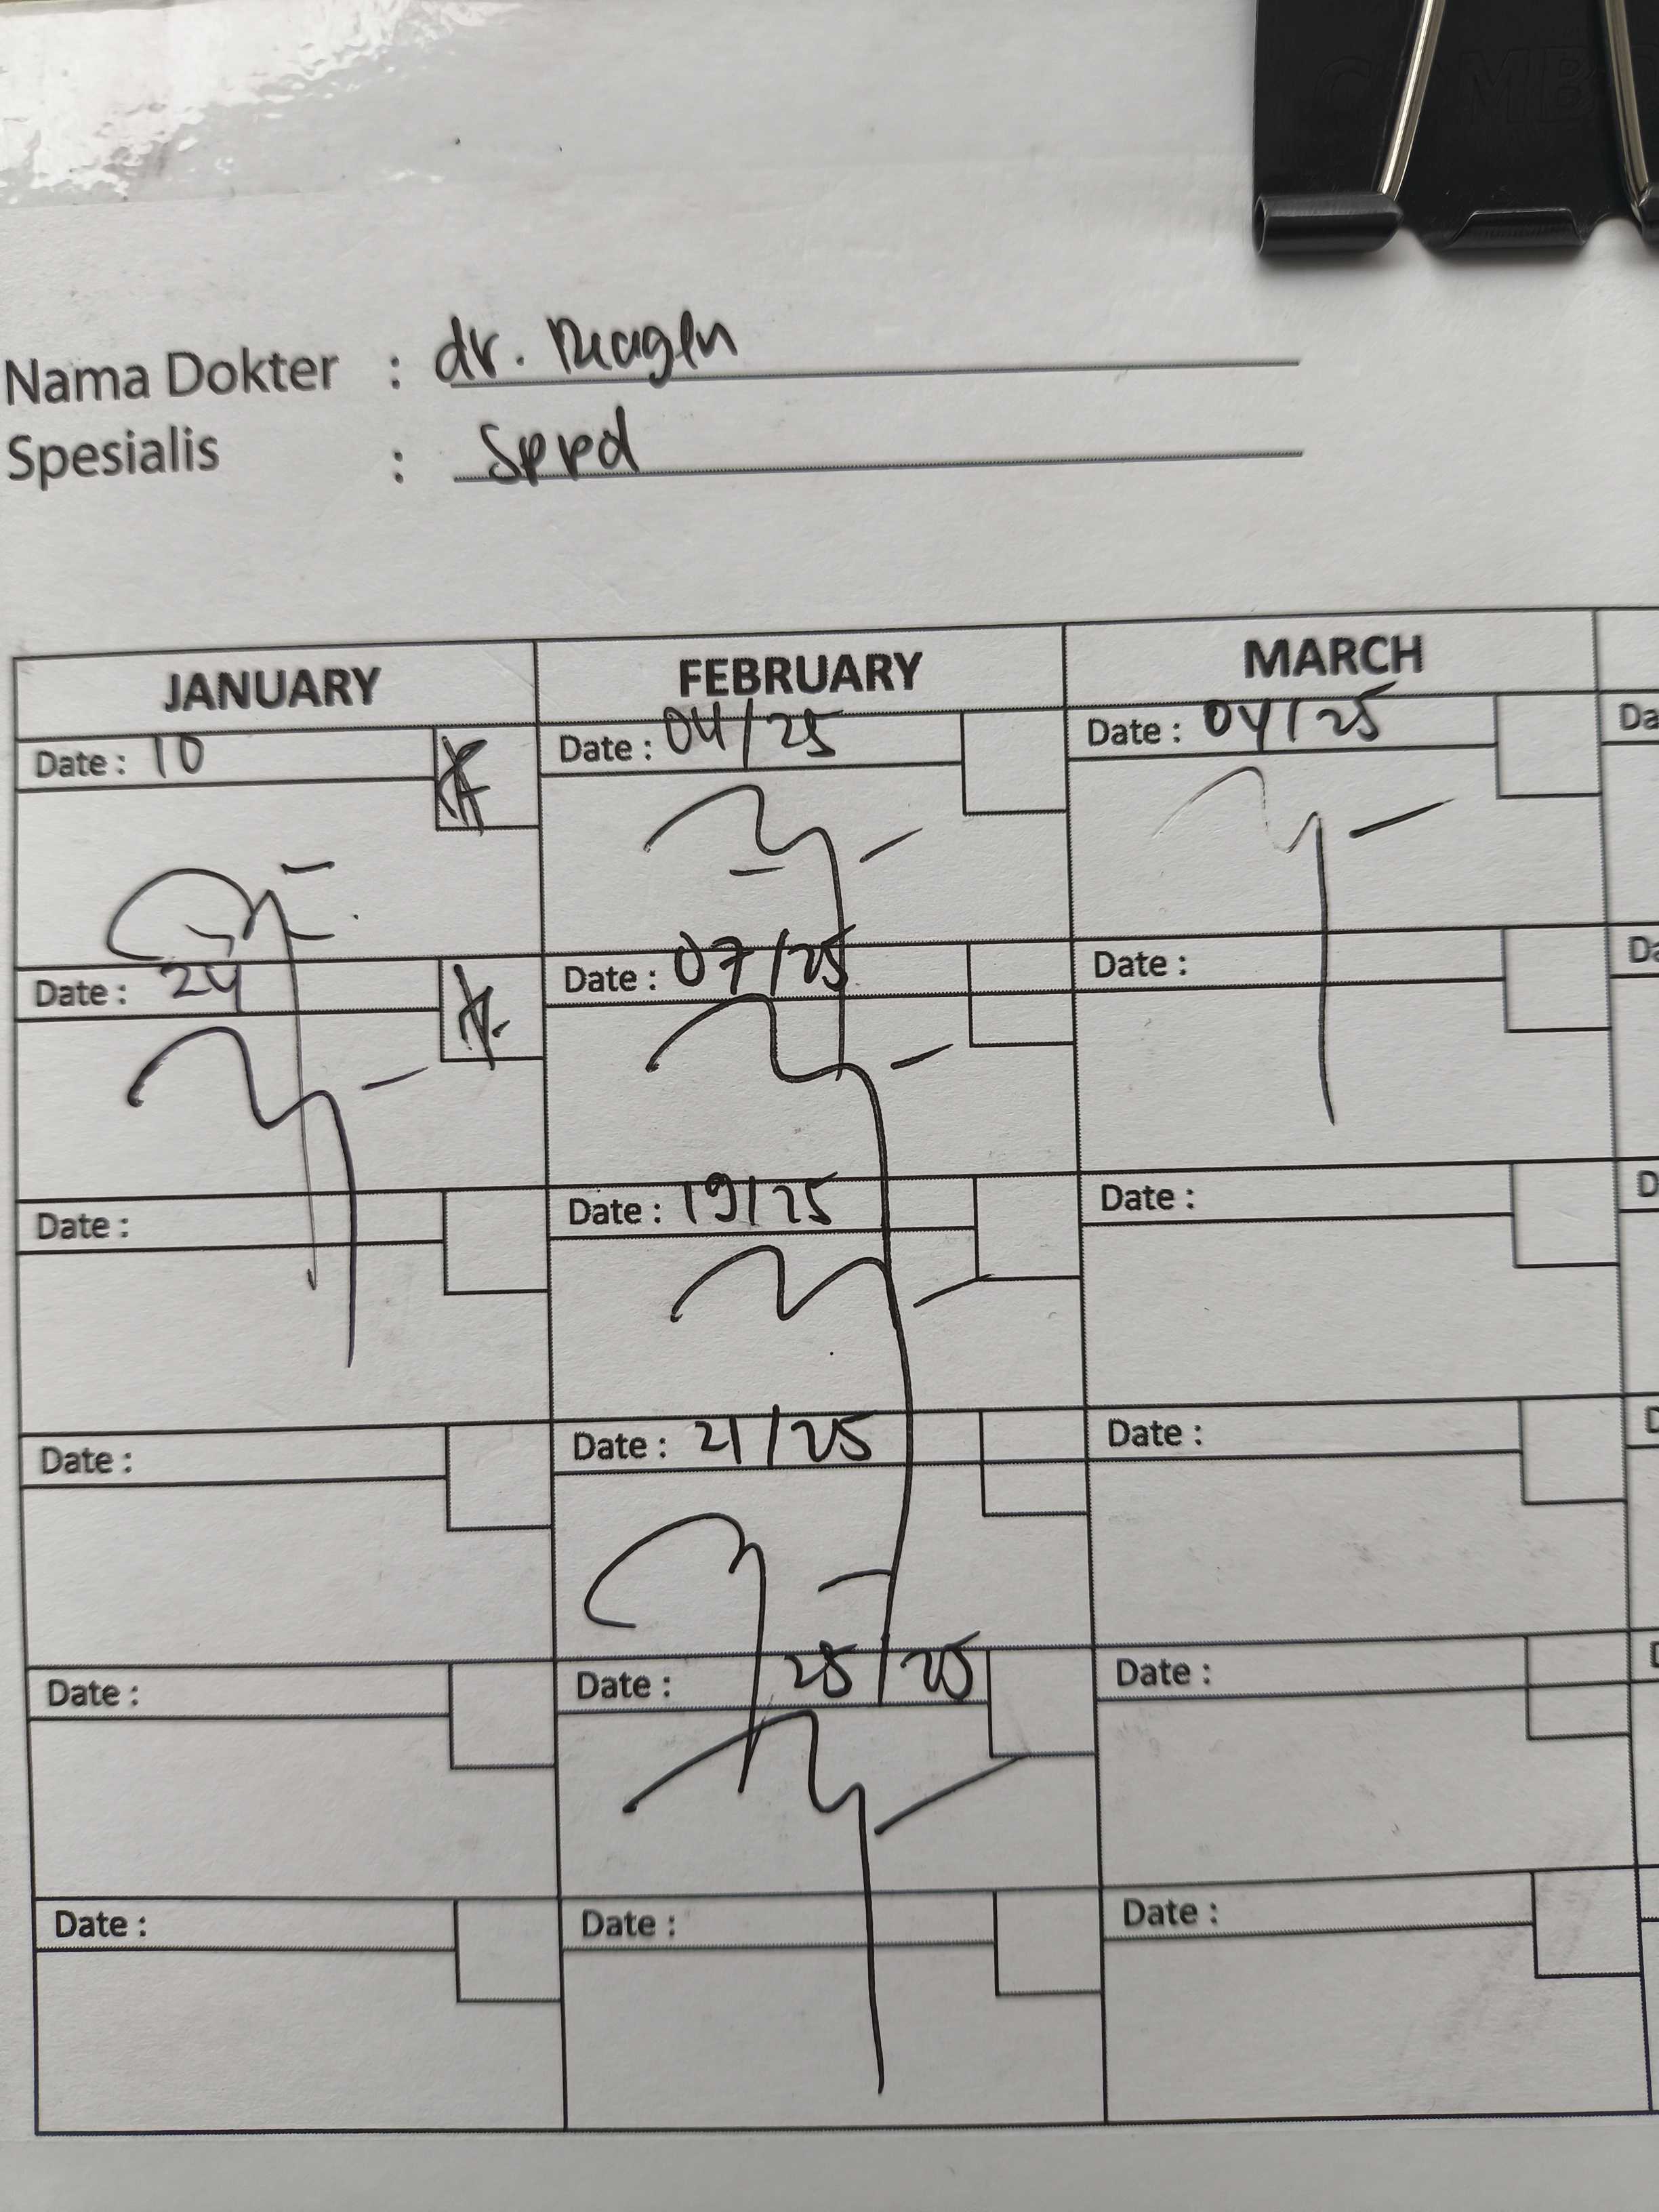 Nama Dokter : dr. Reagen
Spesialis : Sppd
JANUARY FEBRUARY MARCH
Date : 10 Date : 04/25 Date : 04/25 Da
Date : 24 Date : 07/25 Date : Da
Date : Date : 19/25 Date : D
Date : Date : 21/25 Date : D
Date : Date : 25/25 Date :
Date : Date : Date :